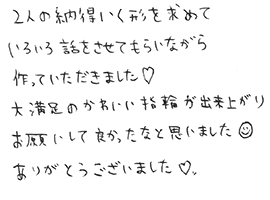 2人の納得いく形を求めて
いろいろ話をさせてもらいながら
作っていただきました♡
大満足のかわいい指輪が出来上がり
お願いして良かったなと思いました☺
ありがとうございました♡。